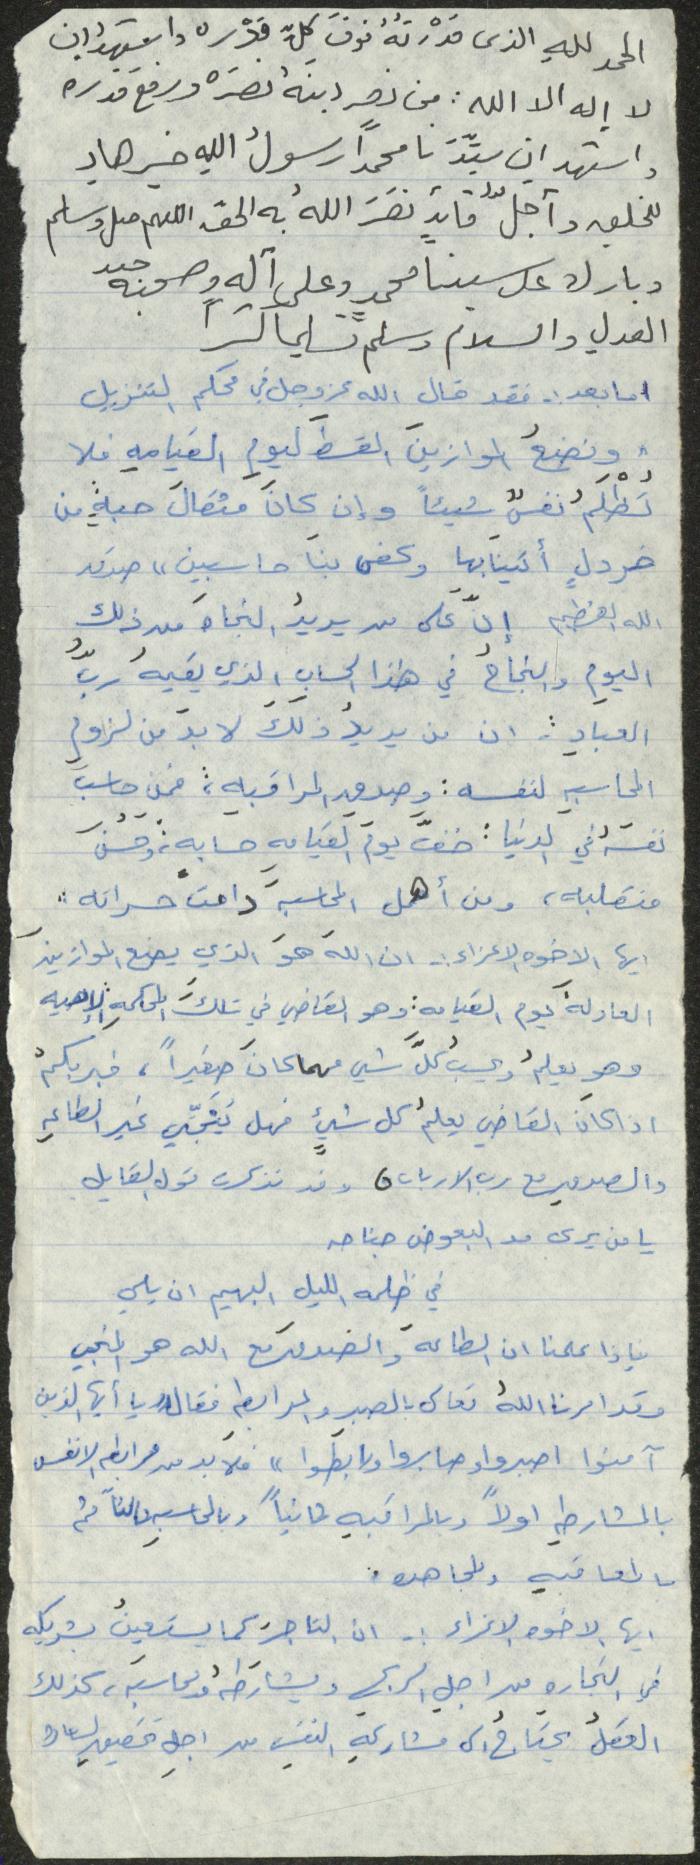 الحمد لله الذى قدْرتهُ فوقَ كلّ قدْره واشهدُ ان
لا إله الا الله : من نصر دينهُ نصرَه ورفع قدره
واشهد ان سيّدَنا محمداً رسولُ اللهِ خير هادٍ
للخلق وأجلُّ قائدٍ نصَرَ اللهُ به الحق اللهم صل وسلم
وبارك على سيدنا محمدٍ وعلى آلهِ وصحبه
العدلِ والسلام وسلم تسليماً كثيراً
اما بعد :- فقد قال الله عز وجل في محكم التنزيل
" ونضعُ الموازينَ القسطَ ليومِ القيامه فلا
تُظْلَمُ نفسٌ شيئاً وإن كانَ مثقالَ حبةٍ من
خردلٍ أتينابها وكفى بنا حاسبين " صدق
الله العظيم إنّ على من يريدُ النجاة من ذلك
اليوم والنجاحُ في هذا الحساب الذي يقيمهُ ربُّ
العبادِ :- ان من يريدُ ذلكَ لا بدّ من لزوم
المحاسبه لنفسه : وصدق المراقبه ، فمن حاسبَ
نفسَهُ في الدنيا : خفّ يومَ القيامه حسابه : وحَسُنَ
منقلبه ، ومن أهمل المحاسبةَ دامت حسراته :
ايها الاخوه الاعزاء :- ان اللهَ هوَ الذي يضع الموازينَ
العادلةَ يوم القيامه : وهو القاضي في تلكَ المحكمةِ الإلهيه
وهو يعلمُ ويحسبُ كلَّ شيءٍ مهما كانَ صغيراً ، فبربكمْ
اذا كانَ القاضي يعلمُ كل شيءٍ فهل يُنَجّي غير الطاعه
والصدق مع رب الارباب ، وقد تذكرت قول القايل
يا من يرى مد البعوض جناحه
في ظلمه الليل البهيم ان يلي
فإذا علمنا ان الطاعةَ والصدق مع الله هو المنجي
وقد امرنا اللهُ تعالى بالصبر والمرابطه فقال " يا أيها الذين
آمنوا اصبروا وصابروا ورابطوا " فلا بد من مرابطه الانفس
بالمشارطه اولاً وبالمراقبه ثانياً وبالمحاسبه ثالثاً ثم
بالمعاقبه والمجاهده .
ايها الاخوه الاعزاء :- ان التاجرَ كما يستعينُ بشريكه
في التجاره من اجلِ الربح ويشارطهُ ويحاسبه ، كذلك
العقلُ يحتاجُ الى مشاركه النفسِ من اجلِ تحقيق